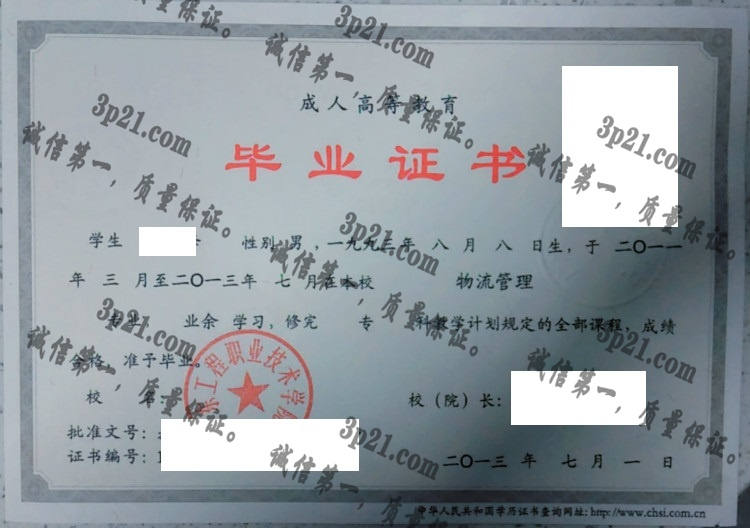 成人高等教育
毕业证书
学生 性别 男，一九九三年 八 月 八 日生，于 二〇一一
年 三 月至二〇一三年 七 月在本校 物流管理
专业 业余 学习，修完 专 科教学计划规定的全部课程，成绩
合格，准予毕业。
工程职业技术学院
校 名
校（院）长：
批准文号：
证书编号：
二〇一三 年 七 月 一 日
中华人民共和国学历证书查询网址：http://www.chsi.com.cn
3p21.com
诚信第一，质量保证。
3p21.com
诚信第一，质量保证。
3p21.com
诚信第一，质量保证。
3p21.com
诚信第一，质量保证。
3p21.com
诚信第一，质量保证。
3p21.com
诚信第一，质量保证。
3p21.com
诚信第一，质量保证。